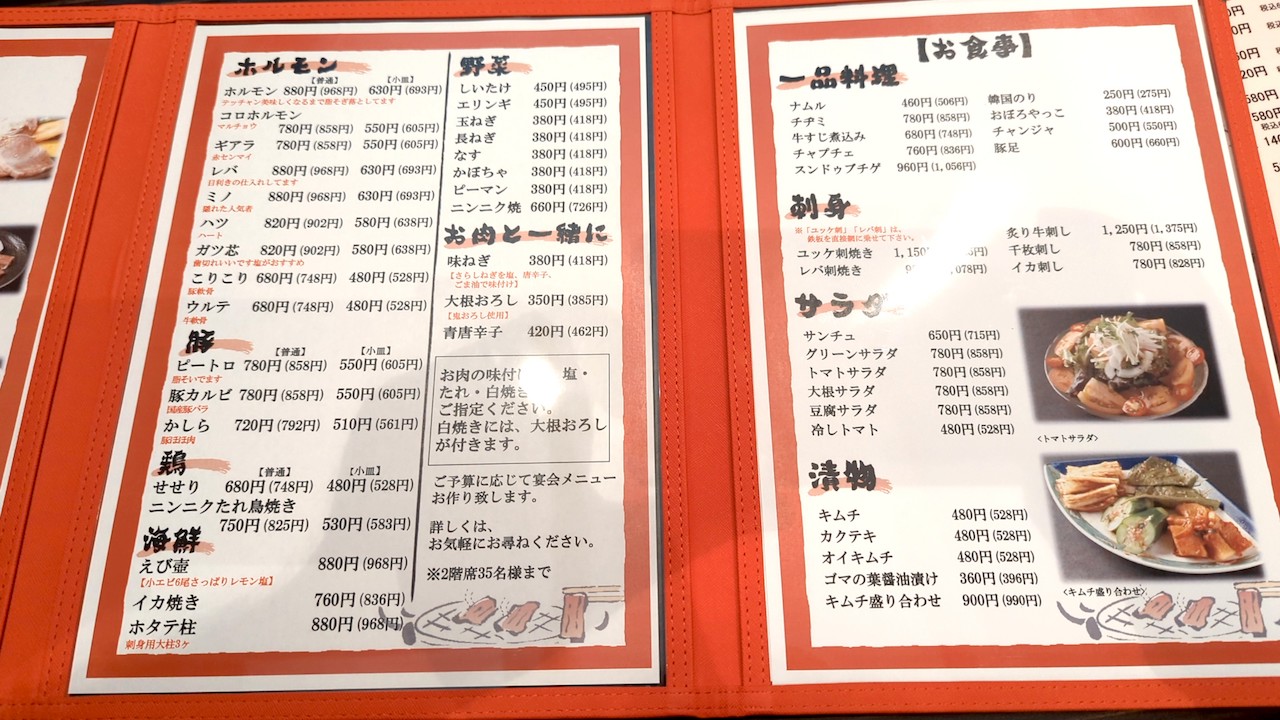 ホルモン
【普通】 【小皿】
ホルモン 880円(968円) 630円(693円)
テッチャン美味しくなるまで脂そぎ落としてます
コロホルモン
マルチョウ 780円(858円) 550円(605円)
ギアラ 780円(858円) 550円(605円)
赤センマイ
レバ 880円(968円) 630円(693円)
目利きの仕入れしてます
ミノ 880円(968円) 630円(693円)
隠れた人気者
ハツ 820円(902円) 580円(638円)
ハート
ガツ芯 820円(902円) 580円(638円)
歯切れいいです塩がおすすめ
こりこり 680円(748円) 480円(528円)
豚軟骨
ウルテ 680円(748円) 480円(528円)
牛軟骨
豚
【普通】 【小皿】
ピートロ 780円(858円) 550円(605円)
脂そいでます
豚カルビ 780円(858円) 550円(605円)
国産豚バラ
かしら 720円(792円) 510円(561円)
豚ほほ肉
鶏
【普通】 【小皿】
せせり 680円(748円) 480円(528円)
ニンニクたれ鳥焼き
750円(825円) 530円(583円)
海鮮
えび壺 880円(968円)
【小エビ6尾さっぱりレモン塩】
イカ焼き 760円(836円)
ホタテ柱 880円(968円)
刺身用大柱3ヶ
野菜
しいたけ 450円(495円)
エリンギ 450円(495円)
玉ねぎ 380円(418円)
長ねぎ 380円(418円)
なす 380円(418円)
かぼちゃ 380円(418円)
ピーマン 380円(418円)
ニンニク焼 660円(726円)
お肉と一緒に
味ねぎ 380円(418円)
【さらしねぎを塩、唐辛子、
ごま油で味付け】
大根おろし 350円(385円)
【鬼おろし使用】
青唐辛子 420円(462円)
お肉の味付け 塩・
たれ・白焼き
ご指定ください。
白焼きには、大根おろし
が付きます。
ご予算に応じて宴会メニュー
お作り致します。
詳しくは、
お気軽にお尋ねください。
※2階席35名様まで
【お食事】
一品料理
ナムル 460円(506円)
チヂミ 780円(858円)
牛すじ煮込み 680円(748円)
チャプチェ 760円(836円)
スンドゥブチゲ 960円(1,056円)
韓国のり 250円(275円)
おぼろやっこ 380円(418円)
チャンジャ 500円(550円)
豚足 600円(660円)
刺身
※「ユッケ刺」「レバ刺」は、
鉄板を直接網に乗せて下さい。
ユッケ刺焼き
レバ刺焼き
炙り牛刺し 1,250円(1,375円)
千枚刺し 780円(858円)
イカ刺し 780円(828円)
サラダ
サンチュ 650円(715円)
グリーンサラダ 780円(858円)
トマトサラダ 780円(858円)
大根サラダ 780円(858円)
豆腐サラダ 780円(858円)
冷しトマト 480円(528円)
<トマトサラダ>
漬物
キムチ 480円(528円)
カクテキ 480円(528円)
オイキムチ 480円(528円)
ゴマの葉醤油漬け 360円(396円)
キムチ盛り合わせ 900円(990円)
<キムチ盛り合わせ>